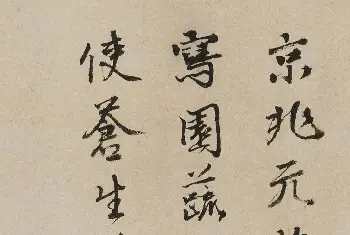 京兆元
寫園蔬
使蒼生